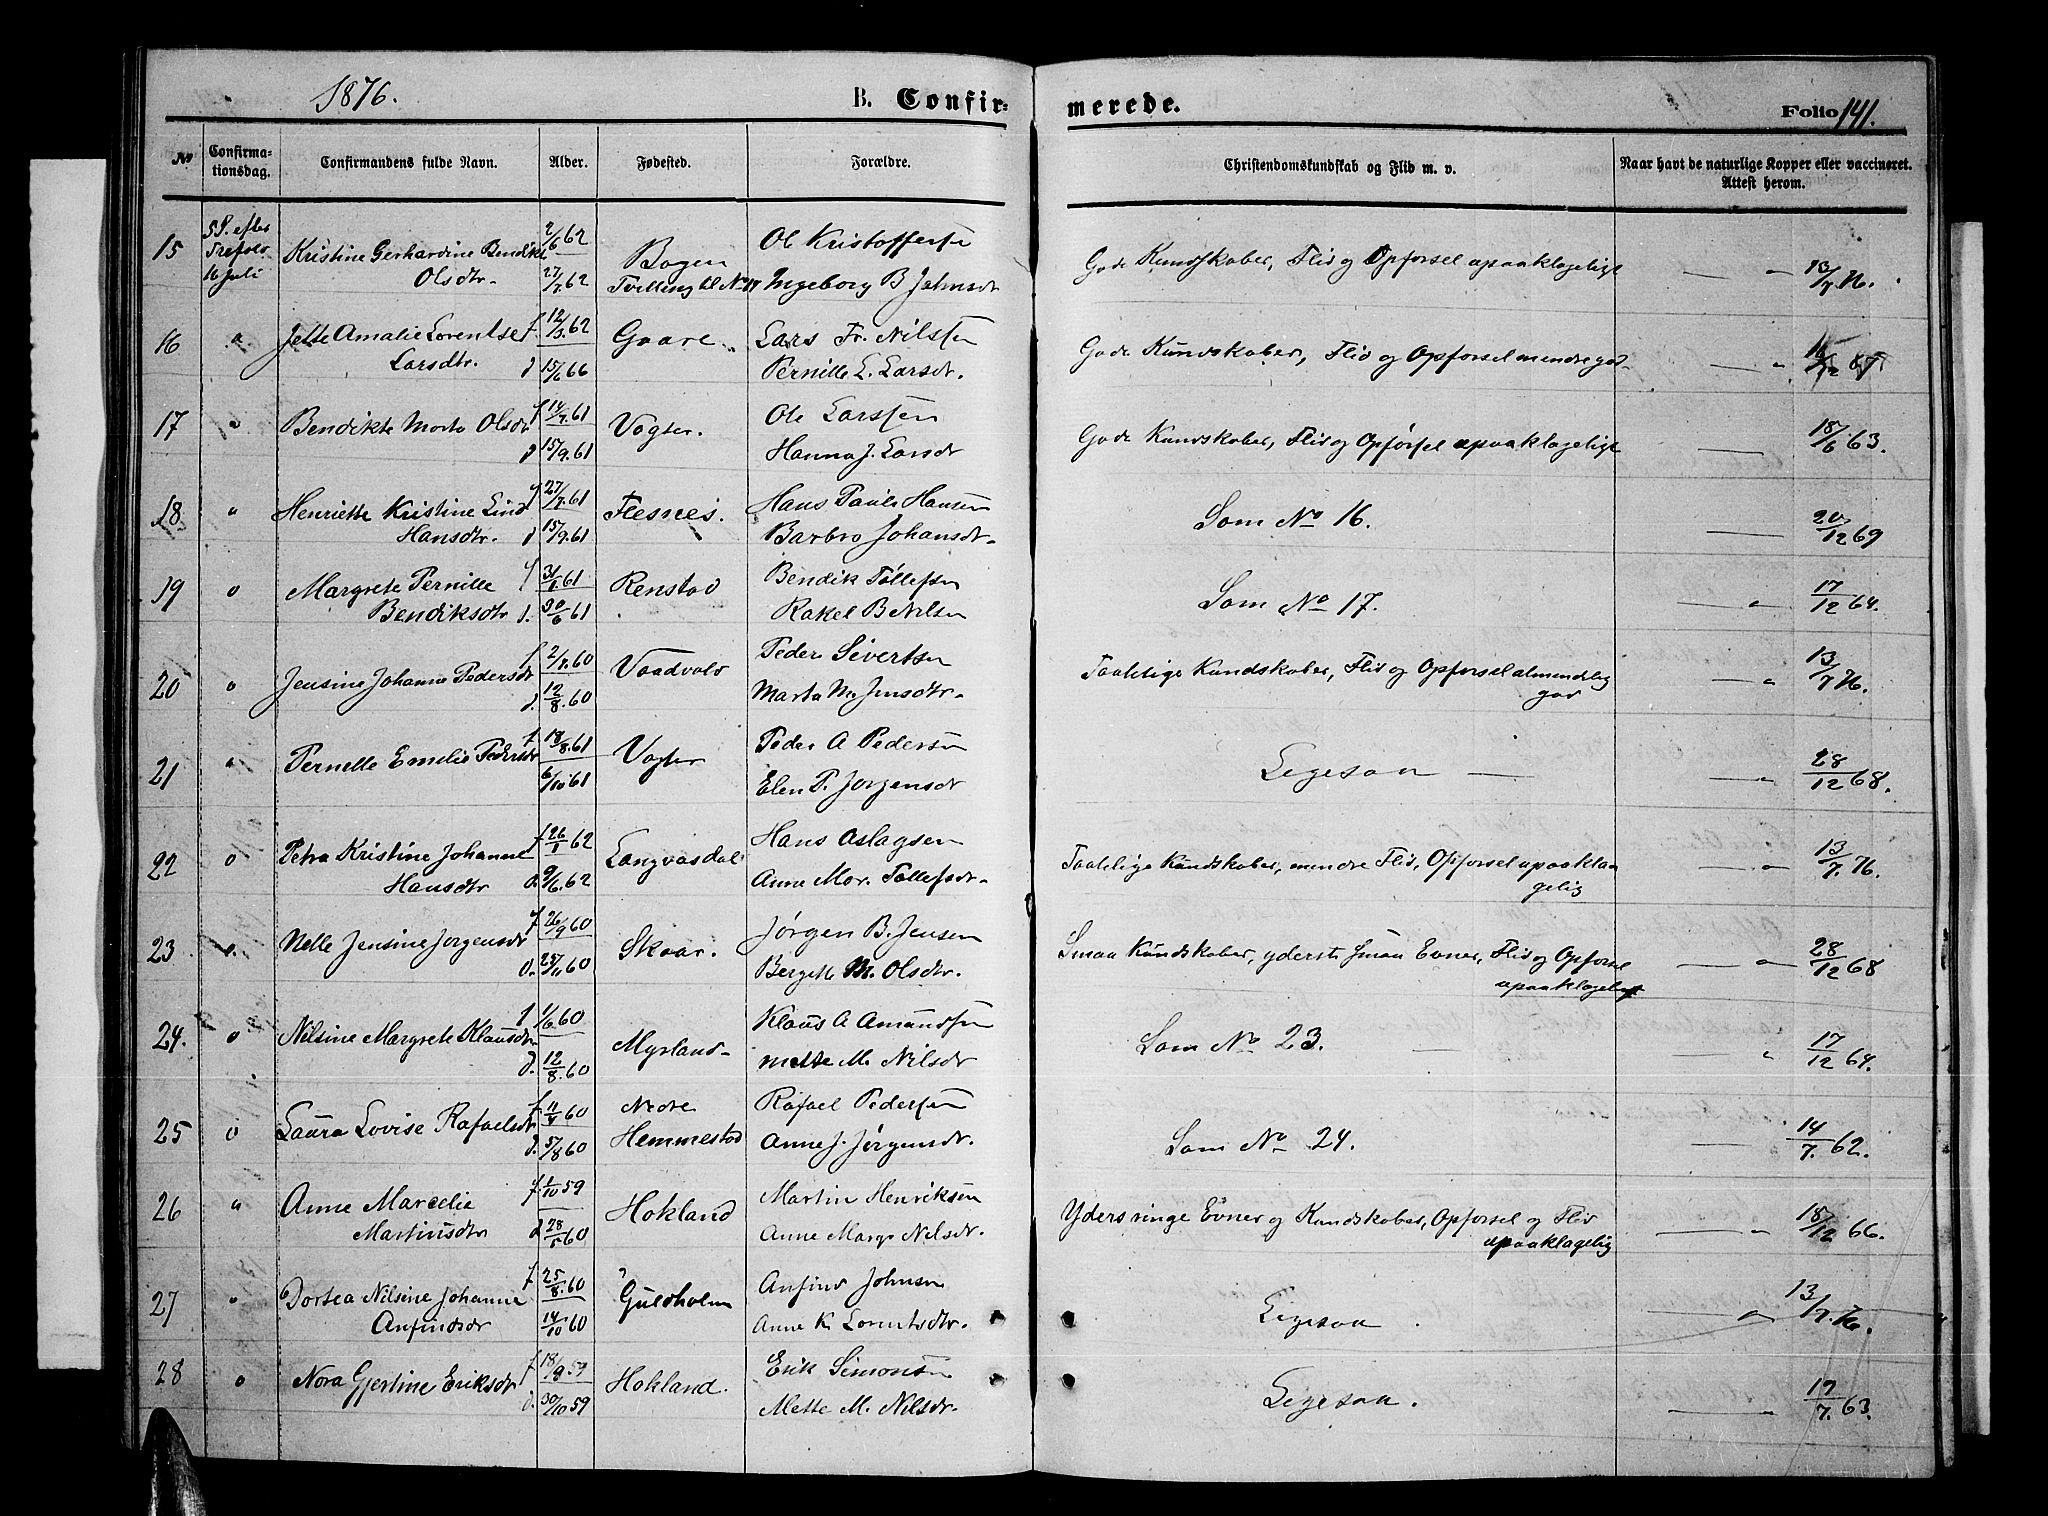 1876.
B. Confir-
merede.
Folio 141.
No
Confirma-
tionsdag.
Confirmandens fulde Navn.
Alder.
Fødested.
Forældre.
Christendomskundskab og Flid m. v.
Naar havt de naturlige Kopper eller vaccineret.
Attest herom.
15 5 S. efter Trefold 16 Juli
Kristine Gerhardine Bendikte
Olsdtr.
2/6 62
27/7 62
Bogen
Tvilling til No 14
Ol Kristoffersen
Ingeborg B Johnsdr
Gode Kundskaber, Flid og Opførsel upaaklagelige
— " 13/7 76.
16 "
Jette Amalie Lorentse
Larsdtr.
f. 12/3 62
d 15/6 66
Gaare.
Lars Fr. Nilsen
Pernille L. Larsdr.
Gode Kundskaber, Flid og Opforsel mendre god
— "
17 "
Bendikte Marta Olsdr
f 14/7 61
d 15/9. 61
Vogter.
Ole Larssen
Hanna J. Larsdr
Gode Kundskaber, Flid og Opførsel upaaklagelige
— 18/6 63.
18. "
Henriette Kristine Lind
Hansdtr.
f 27/7. 61
d 15/9. 61
Flesnes.
Hans Paul Hansen
Barbro Johansdr.
Som No 16.
— 20/12 69
19 "
Margrete Pernille
Bendiksdtr
f 31/1 61
d. 30/6 61
Renstad
Bendik Tollefsen
Rakel B Nilsen
Som No 17.
— " 17/12 64.
20 "
Jensine Johanne Pedersdr
f 2/7. 60
d. 12/8. 60
Vaadvold
Peder Sivertsen
Marta M Jensdtr.
Taalelige Kundskaber, Flid og Opforsel almendelig
god
— " 13/7 76.
21 "
Pernelle Emelie Pedersdr
f. 18/8. 61
6/10 61
Vogter
Peder A Pedersen
Elen P. Jorgensdr
Ligesaa —
— " 28/12 68.
22 "
Petra Kristine Johanne
Hansdtr
f. 26/1 62
d. 9/6. 62
Langvasdal
Hans Aslagsen
Anne Mar. Tollefsdr.
Taalelige Kundskaber, mendre Flid, Opforsel upaakla-
gelig
— " 13/7. 76.
23 "
Nelle Jensine Jorgensdr
f. 26/9 60
d. 25/11 60
Skaar.
Jørgen B. Jensen
Bergette M. Olsdtr.
Smaa Kundskaber, yderst smaa Evner, Flid og Opforsel
upaaklagelig
— " 28/12 68
24. "
Nilsine Margrete Klausdr
f 1/6. 60
d. 12/8. 60
Myrland
Klaus A Amundsen
Mette M. Nilsdr
Som No 23. —
— " 17/12 64.
25 "
Laura Lovise Rafaelsdr
f. 11/4 60
d. 5/8 60
Nedre
Hemmestad
Rafael Pedersen
Anne J. Jørgensdr.
Som No 24.
— " 14/7. 62.
26 "
Anne Marcelie
Martinsdtr
f. 1/10 59
d 28/5 60
Hokland
Martin Henriksen
Anne Margr Nelsdr.
Yders ringe Evner og Kundskaber, Opforsel og Flid
upaaklagelig
— " 18/12 66.
27 "
Dortea Nilsine Johanne
Anfindsdr
f. 25/8. 60
14/10 60
Guldholm
Anfind Johnsen
Anne K Lorentsdtr.
Ligesaa.
— " 13/7. 76.
28 "
Nora Gjertine Eriksdtr
f. 18/9. 59
d. 30/10 59
Hokland.
Erik Simonsen
Mette M. Nilsdr.
Ligesaa.
— " 19/7. 63.